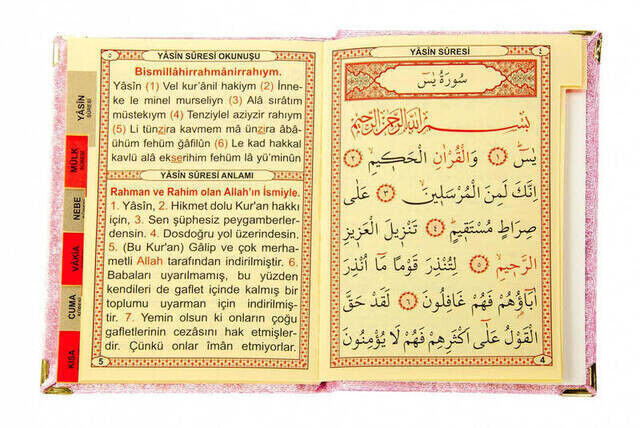 YÂSİN SÛRESİ OKUNUŞU
٥
Bismillâhirrahmânirrahıym.
Yâsîn (1) Vel kur'ânil hakiym (2) İnne-
ke le minel murseliyn (3) Alâ sırâtım
müstekıym (4) Tenziylel aziyzir rahıym
(5) Li tünzira kavmem mâ ünzira âbâ-
ühüm fehüm ğâfilûn (6) Le kad hakkal
kavlü alâ ekserihim fehüm lâ yü'minûn
YÂSİN SÛRESİ ANLAMI
Rahman ve Rahim olan Allah'ın İsmiyle.
1. Yâsîn, 2. Hikmet dolu Kur'an hakkı
için, 3. Sen şüphesiz peygamberler-
densin. 4. Dosdoğru yol üzerindesin.
5. (Bu Kur'an) Gâlip ve çok merha-
metli Allah tarafından indirilmiştir. 6.
Babaları uyarılmamış, bu yüzden
kendileri de gaflet içinde kalmış bir
toplumu uyarman için indirilmiş-
tir. 7. Yemin olsun ki onların çoğu
gafletlerinin cezâsını hak etmişler-
dir. Çünkü onlar îmân etmiyorlar.
5
YÂSİN
SÛRESİ
MÜLK
SÛRESİ
NEBE
VÂKIA
CUMA
KISA
YÂSİN SÛRESİ
٤
سُورَةُ يٰسٓ
بِسْمِ اللّٰهِ الرَّحْمٰنِ الرَّحِيمِ
يٰسٓ ﴿١﴾ وَالْقُرْاٰنِ الْحَكِيمِ ﴿٢﴾
اِنَّكَ لَمِنَ الْمُرْسَلِينَ ﴿٣﴾ عَلٰى
صِرَاطٍ مُسْتَقِيمٍ ﴿٤﴾ تَنْزِيلَ الْعَزِيزِ
الرَّحِيمِ ﴿٥﴾ لِتُنْذِرَ قَوْمًا مَٓا اُنْذِرَ
اٰبَٓاؤُ۬هُمْ فَهُمْ غَافِلُونَ ﴿٦﴾ لَقَدْ حَقَّ
الْقَوْلُ عَلٰٓى اَكْثَرِهِمْ فَهُمْ لَا يُؤْمِنُونَ
4